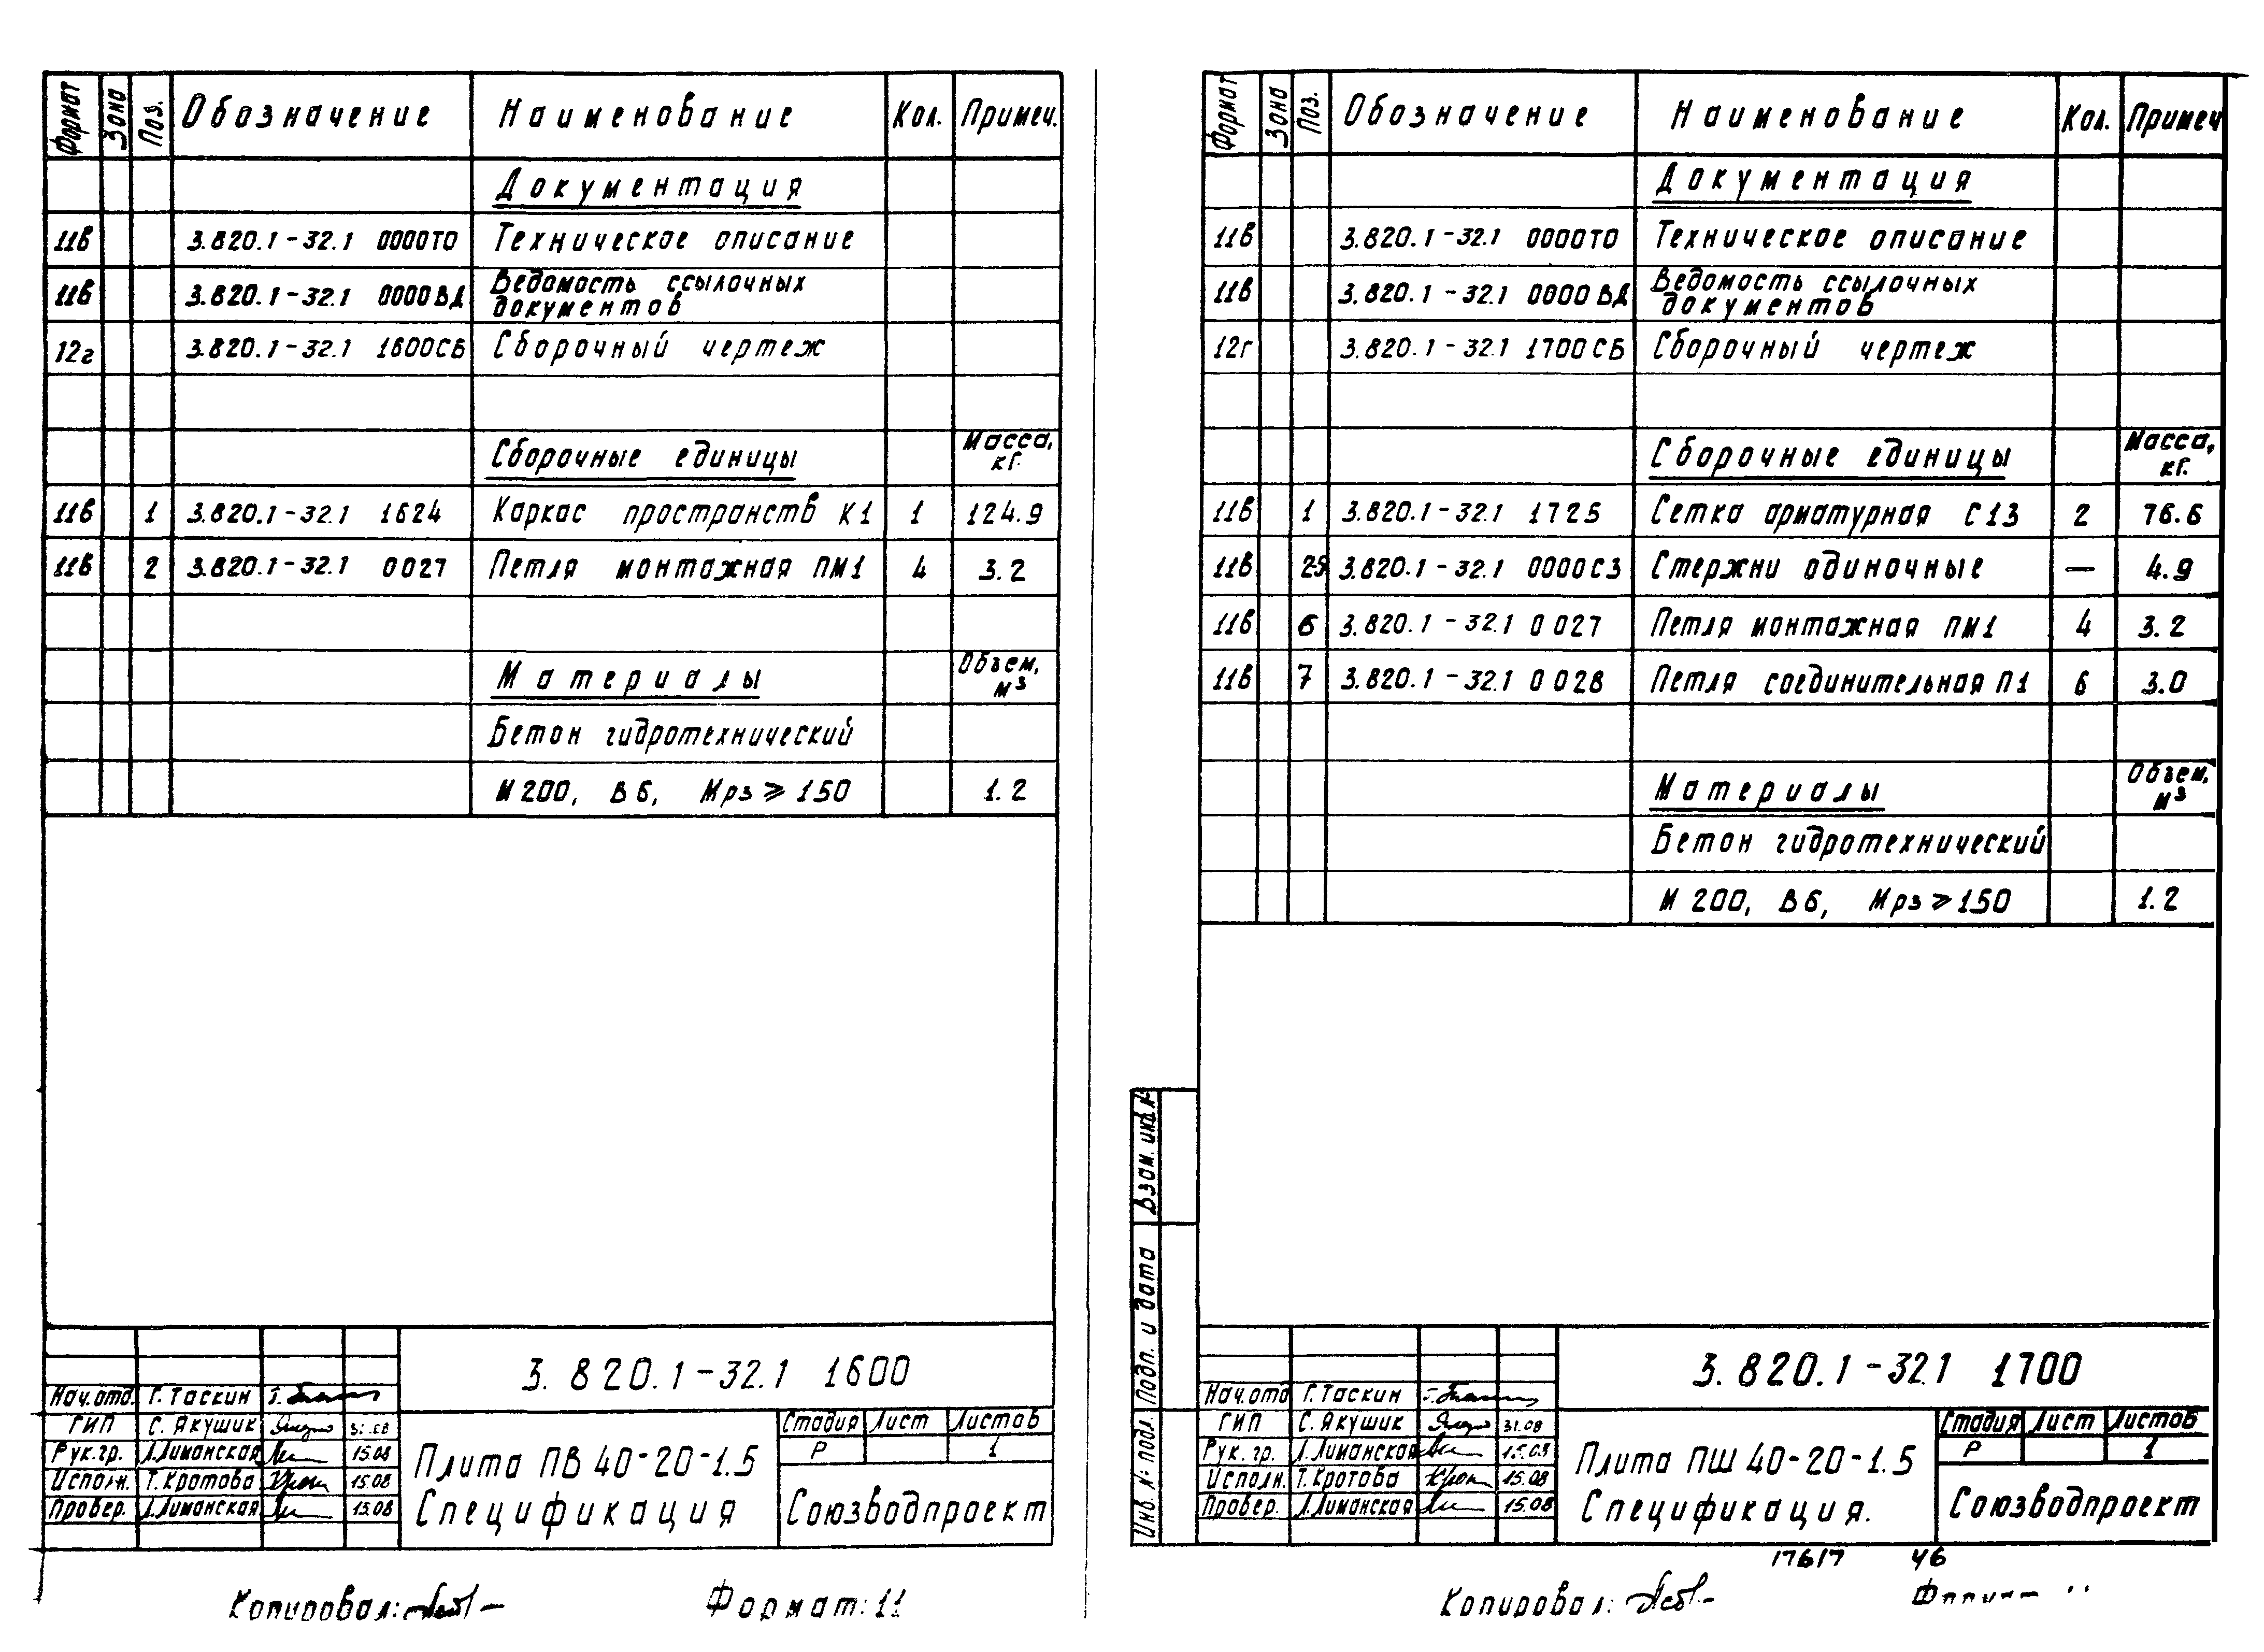 Формат Зона Поз. Обозначение Наименование Кол. Примеч.
Документация
11в 3.820.1-32.1 0000ТО Техническое описание
11в 3.820.1-32.1 0000ВД Ведомость ссылочных
документов
12г 3.820.1-32.1 1600СБ Сборочный чертеж
Сборочные единицы Масса,
кг.
11в 1 3.820.1-32.1 1624 Каркас пространств К1 1 124.9
11в 2 3.820.1-32.1 0027 Петля монтажная ПМ1 4 3.2
Материалы Объем,
м³
Бетон гидротехнический
М200, В6, Мрз ⩾ 150 1.2
3.820.1-32.1 1600
Нач.отд. Г. Таскин
ГИП С. Якушик 31.08
Рук.гр. Л.Лиманская 15.08
Исполн. Т. Кротова 15.08
Провер. Л.Лиманская 15.08
Плита ПВ 40-20-1.5
Спецификация
Стадия Лист Листов
Р 1
Союзводпроект
Копировал:
Формат: 11
Формат Зона Поз. Обозначение Наименование Кол. Примеч
Документация
11в 3.820.1-32.1 0000ТО Техническое описание
11в 3.820.1-32.1 0000ВД Ведомость ссылочных
документов
12г 3.820.1-32.1 1700СБ Сборочный чертеж
Сборочные единицы Масса,
кг.
11в 1 3.820.1-32.1 1725 Сетка арматурная С13 2 76.6
11в 2-5 3.820.1-32.1 0000СЗ Стержни одиночные — 4.9
11в 6 3.820.1-32.1 0027 Петля монтажная ПМ1 4 3.2
11в 7 3.820.1-32.1 0028 Петля соединительная П1 6 3.0
Материалы Объем,
м³
Бетон гидротехнический
М 200, В6, Мрз ⩾ 150 1.2
Взам. инв.№
Подп. и дата
Инв. № подл.
3.820.1-32.1 1700
Нач.отд Г. Таскин
ГИП С. Якушик 31.08
Рук. гр. Л.Лиманская 15.08
Исполн. Т. Кротова 15.08
Провер. Л.Лиманская 15.08
Плита ПШ 40-20-1.5
Спецификация.
Стадия Лист Листов
Р 1
Союзводпроект
17617 46
Копировал: